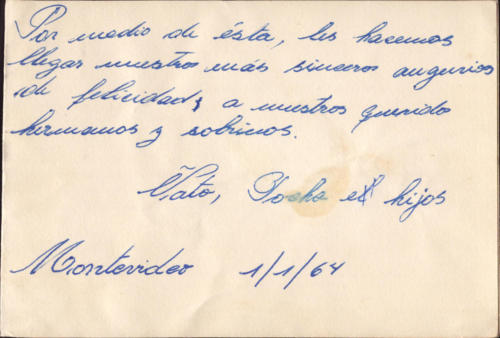 Por medio de ésta, les hacemos
llegar nuestros más sinceros augurios
de felicidad, a nuestros querido
hermanos y sobrinos.
Tato, Pocha e hijos
Montevideo 1/1/64